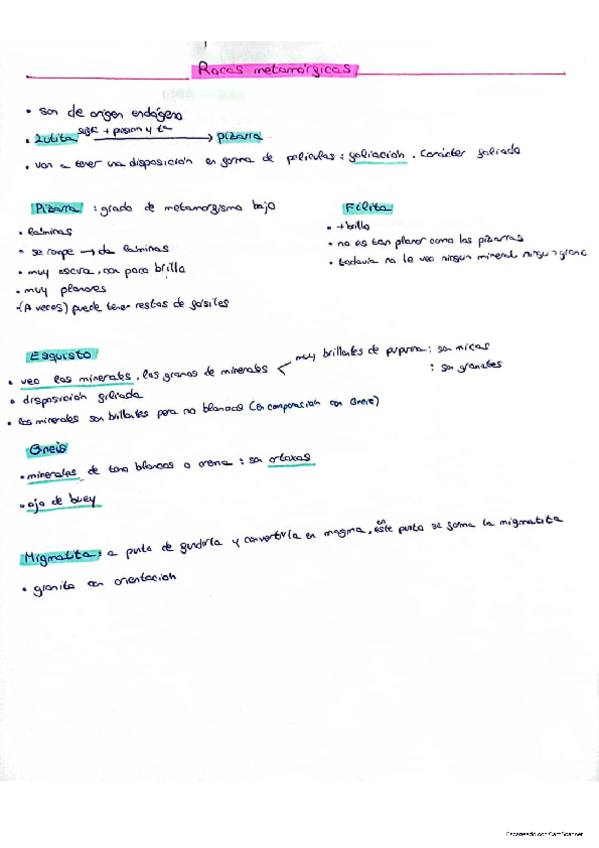 Rocas metamórficas
• son de origen endógeno
• Lutita sufre + presion y tª → pizarra
• van a tener una disposición en forma de películas : foliación . Carácter foliado
Pizarra : grado de metamorfismo bajo
Filita
• laminas
• + brillo
• se rompe → da laminas
• no es tan planar como las pizarras
• muy oscura, con poco brillo
• todavia no le veo ningun mineral ningun grano
• muy planares
• (A veces) puede tener restos de fósiles
Esquisto
• veo los minerales, los granos de minerales < muy brillantes de purpurina : son micas
: son granates
• disposición foliada
• los minerales son brillantes pero no blancos (en comparación con Gneis)
Gneis
• minerales de tono blancos o crema : son ortoxas
• ojo de buey
Migmatita : a punto de fundirla y convertirla en magma, en este punto se forma la migmatita
• granito con orientación
Escaneado con CamScanner